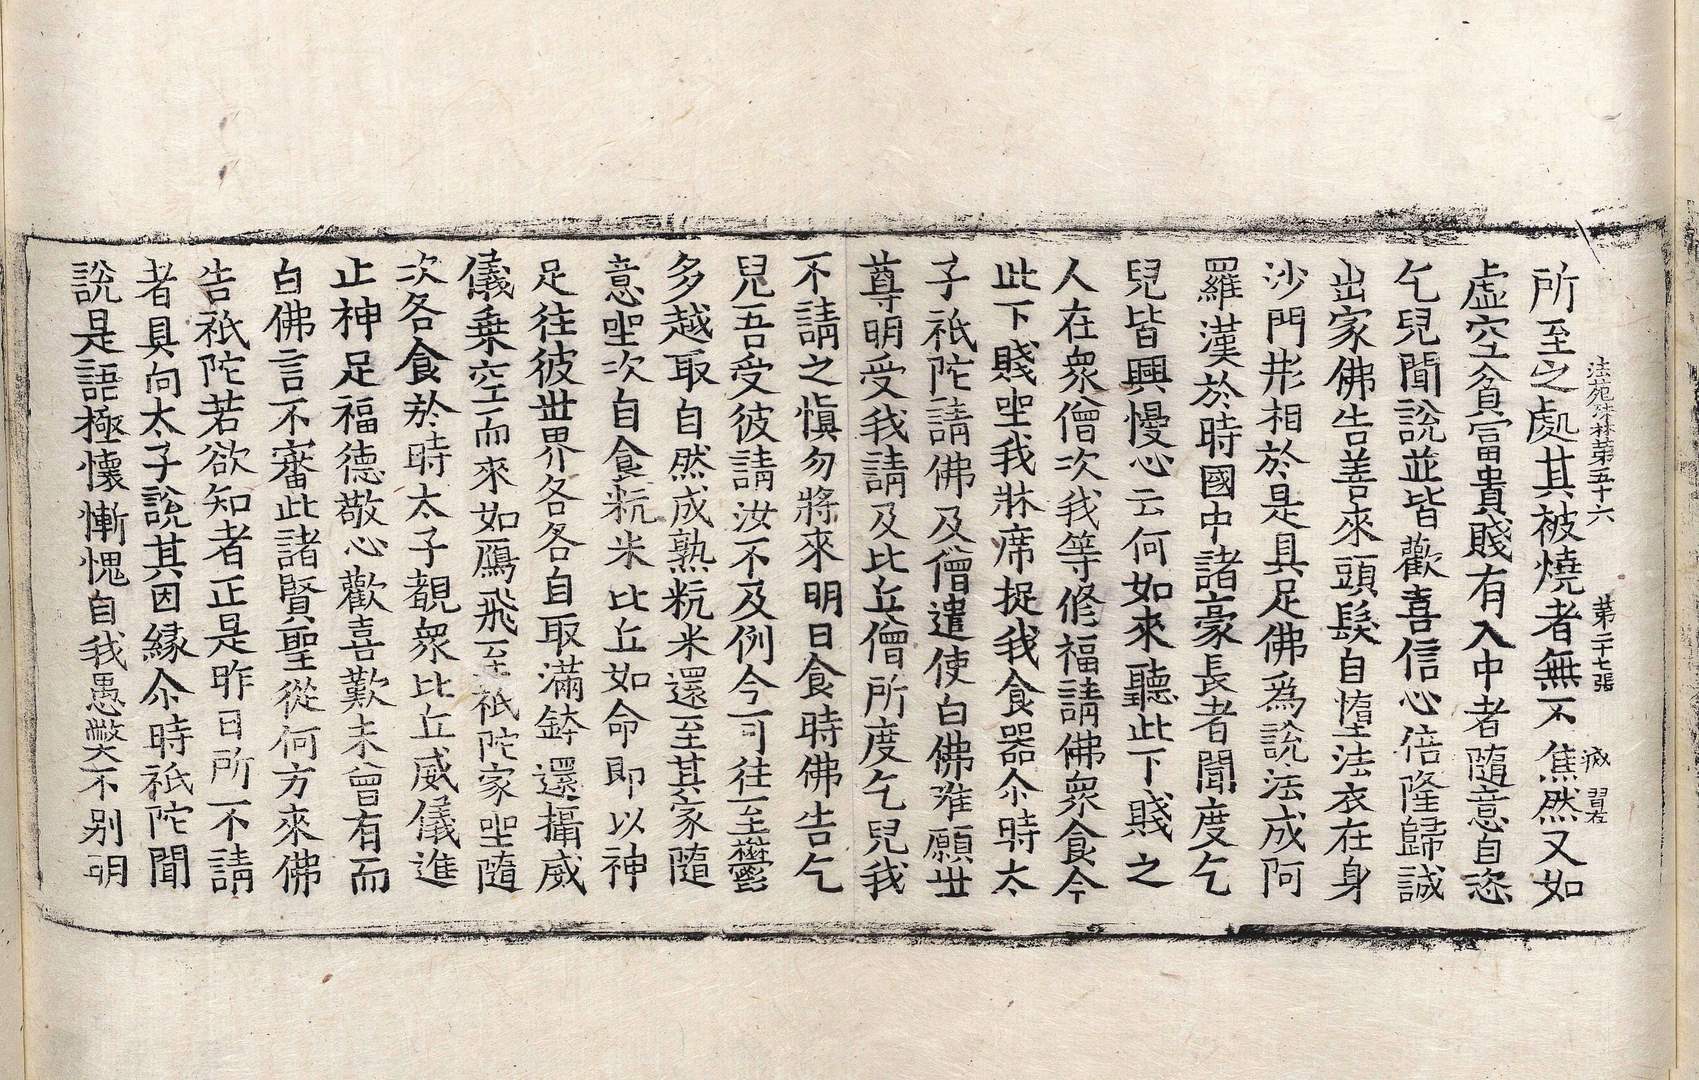 法苑珠林第五十六　第二十七張
所至之處其被燒者無不焦然又如
虛空貧富貴賤有入中者隨意自恣
乞兒聞說並皆歡喜信心倍隆歸誠
出家佛告善來頭髮自墮法衣在身
沙門形相於是具足佛爲說法成阿
羅漢於時國中諸豪長者聞度乞
兒皆興慢心云何如來聽此下賤之
人在衆僧次我等修福請佛衆食今
此下賤坐我牀席捉我食器尒時太
子祇陀請佛及僧遣使白佛唯願世
尊明受我請及比丘僧所度乞兒我
不請之愼勿將來明日食時佛告乞
兒吾受彼請汝不及例今可往至鬱
多越取自然成熟粇米還至其家隨
意坐次自食粇米比丘如命即以神
足往彼世界各各自取滿鉢還攝威
儀乗空而來如鴈飛至祇陀家坐隨
次各食於時太子覩衆比丘威儀進
止神足福德敬心歡喜歎未曾有而
白佛言不審此諸賢聖從何方來佛
告祇陀若欲知者正是昨日所不請
者具向太子說其因緣尒時祇陀聞
說是語極懷慚愧自我愚弊不別明